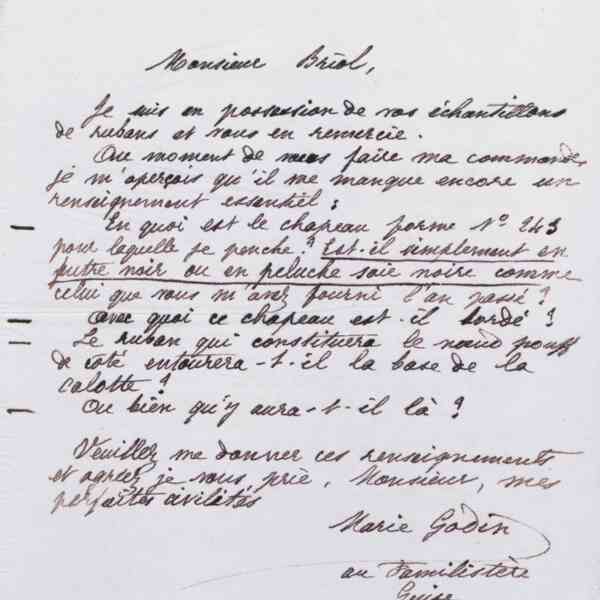 Monsieur Briol,
Je suis en possession de vos échantillons
de rubans et vous en remercie.
Au moment de vous faire ma commande,
je m'aperçois qu'il me manque encore un
renseignement essentiel :
En quoi est le chapeau forme Nº 243
pour laquelle je penche ? Est-il simplement en
feutre noir ou en peluche soie noire comme
celui que vous m'avez fourni l'an passé ?
Avec quoi ce chapeau est-il bordé ?
Le ruban qui constituera le nœud pouff
de côté entourera-t-il la base de la
calotte ?
Ou bien qu'y aura-t-il là ?
Veuillez me donner ces renseignements
et agréez je vous prie, Monsieur, mes
parfaites civilités
Marie Godin
au Familistère
Guise